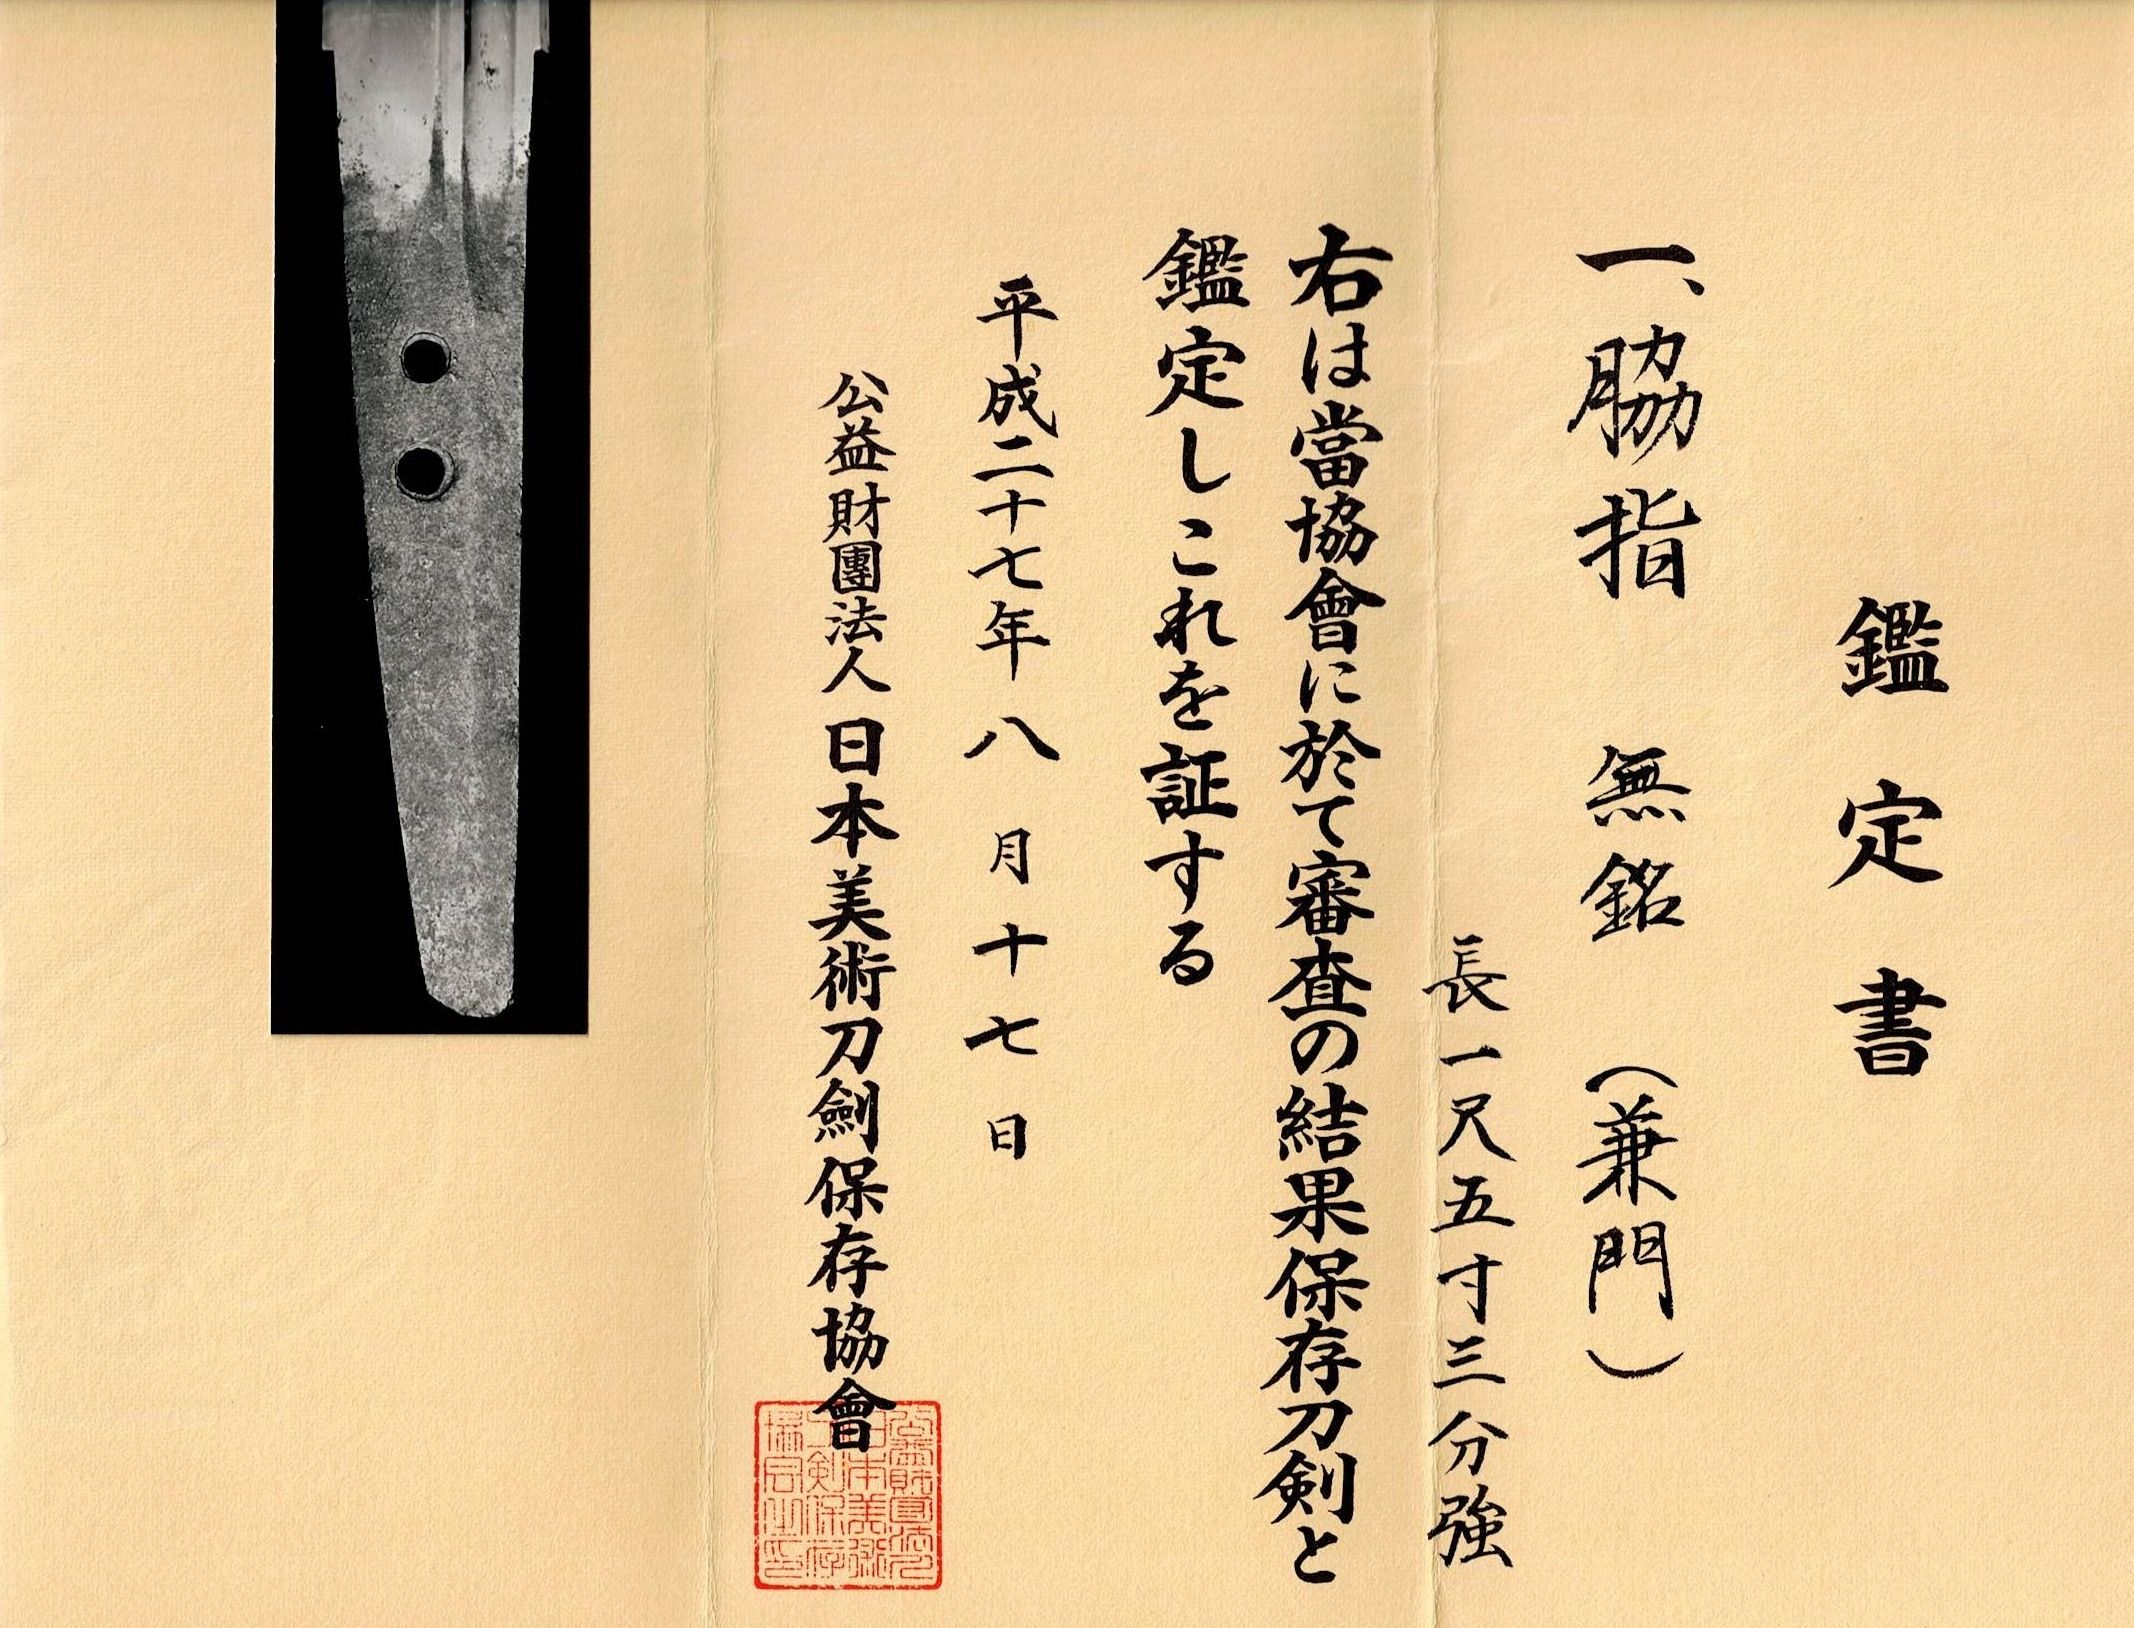 鑑定書
一、脇指　無銘（兼門）
長一尺五寸三分強
右は當協會に於て審査の結果保存刀剣と
鑑定しこれを証する
平成二十七年八月十七日
公益財團法人日本美術刀劍保存協會